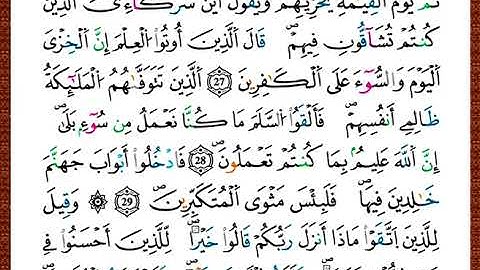 ثُمَّ يَوْمَ ٱلْقِيَٰمَةِ يُخْزِيهِمْ وَيَقُولُ أَيْنَ شُرَكَآءِىَ ٱلَّذِينَ
كُنتُمْ تُشَٰٓقُّونَ فِيهِمْ ۚ قَالَ ٱلَّذِينَ أُوتُوا۟ ٱلْعِلْمَ إِنَّ ٱلْخِزْىَ
ٱلْيَوْمَ وَٱلسُّوٓءَ عَلَى ٱلْكَٰفِرِينَ 27 ٱلَّذِينَ تَتَوَفَّىٰهُمُ ٱلْمَلَٰٓئِكَةُ
ظَالِمِىٓ أَنفُسِهِمْ ۖ فَأَلْقَوُا۟ ٱلسَّلَمَ مَا كُنَّا نَعْمَلُ مِن سُوٓءٍۭ ۚ بَلَىٰٓ
إِنَّ ٱللَّهَ عَلِيمٌۢ بِمَا كُنتُمْ تَعْمَلُونَ 28 فَٱدْخُلُوٓا۟ أَبْوَٰبَ جَهَنَّمَ
خَٰلِدِينَ فِيهَا ۖ فَلَبِئْسَ مَثْوَى ٱلْمُتَكَبِّرِينَ 29 ۞ وَقِيلَ
لِلَّذِينَ ٱتَّقَوْا۟ مَاذَآ أَنزَلَ رَبُّكُمْ ۚ قَالُوا۟ خَيْرًا ۗ لِّلَّذِينَ أَحْسَنُوا۟ فِى